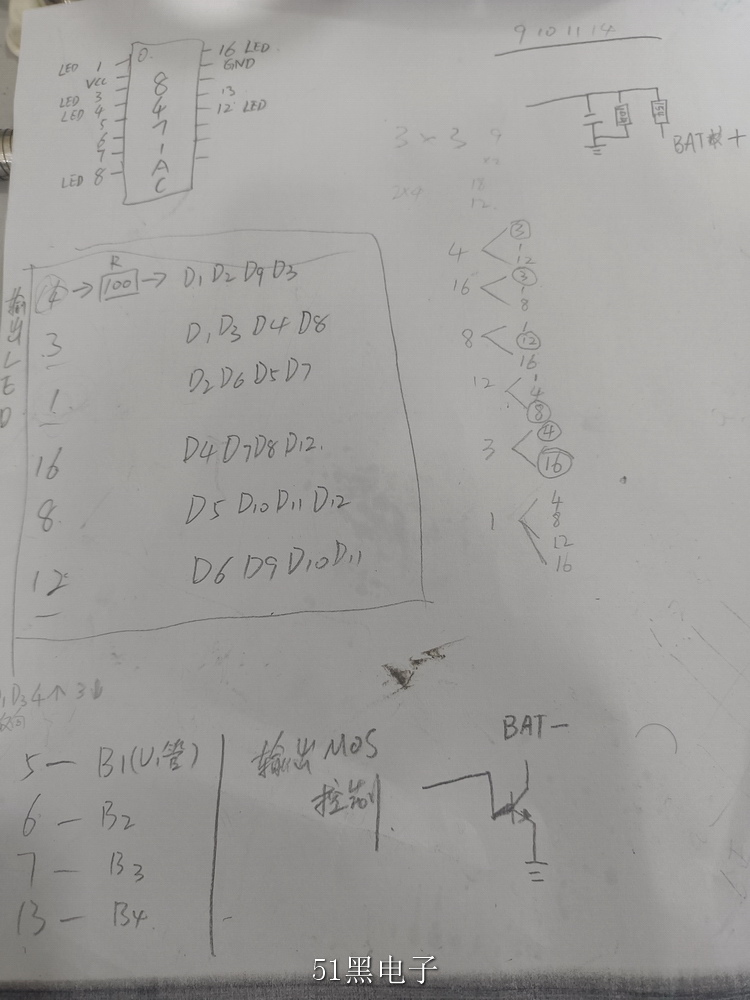 LED 1
VCC
LED 3
LED 4
5
6
7
LED 8
8
4
7
1
A
C
16 LED
GND
13
12 LED
9 10 11 14
BAT
+
3
3
9
12
18
12
输出LED
4
R
100
D1 D2 D9 D3
3
D1 D3 D4 D8
1
D2 D6 D5 D7
16
D4 D7 D8 D12
8
D5 D10 D11 D12
12
D6 D9 D10 D11
4
3
1
12
16
3
8
8
1
12
16
12
1
4
8
3
4
16
1
4
8
12
16
D3 4个
5 — B1(U1管)
6 — B2
7 — B3
13 — B4
输出MOS
控制
BAT—
51黑电子